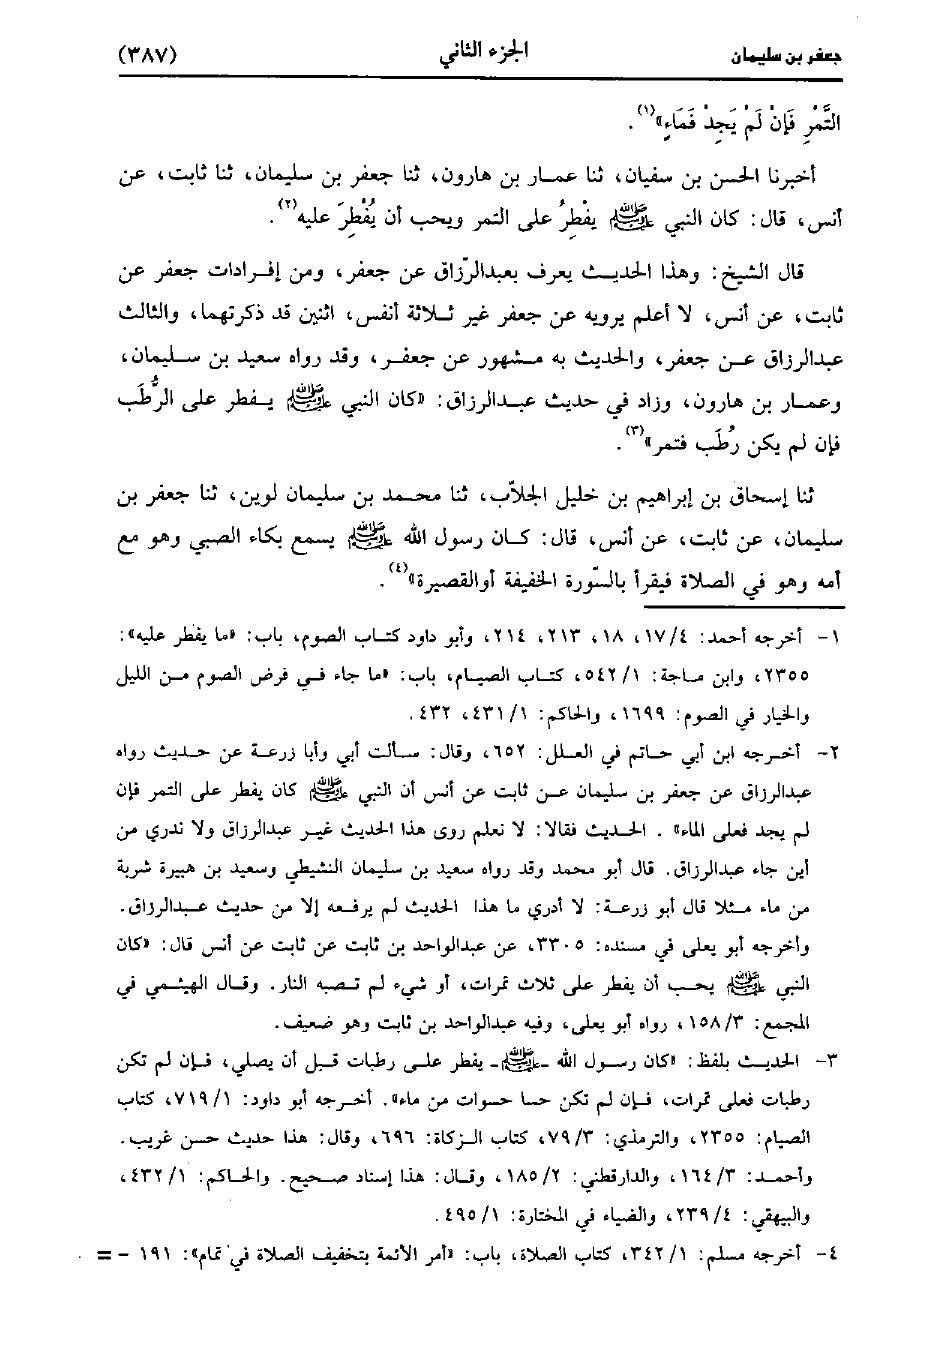 جعفر بن سليمان الجزء الثاني (٣٨٧)
التَّمْرِ فَإِنْ لَمْ يَجِدْ فَمَاءٍ»(١).
أخبرنا الحسن بن سفيان، ثنا عمار بن هارون، ثنا جعفر بن سليمان، ثنا ثابت، عن
أنس، قال: كان النبي ﷺ يفْطِرُ على التمر ويحب أن يُفْطِرَ عليه(٢).
قال الشيخ: وهذا الحديث يعرف بعبدالرّزاق عن جعفر، ومن إفرادات جعفر عن
ثابت، عن أنس، لا أعلم يرويه عن جعفر غير ثلاثة أنفس، اثنين قد ذكرتهما، والثالث
عبدالرزاق عن جعفر، والحديث به مشهور عن جعفر، وقد رواه سعيد بن سليمان،
وعمار بن هارون، وزاد في حديث عبدالرزاق: «كان النبي ﷺ يفطر على الرُّطَب
فإن لم يكن رُطَب فتمر»(٣).
ثنا إسحاق بن إبراهيم بن خليل الجلاّب، ثنا محمد بن سليمان لوين، ثنا جعفر بن
سليمان، عن ثابت، عن أنس، قال: كان رسول الله ﷺ يسمع بكاء الصبي وهو مع
أمه وهو في الصلاة فيقرأ بالسّورة الخفيفة أوالقصيرة»(٤).
١- أخرجه أحمد: ١٧/٤، ١٨، ٢١٣، ٢١٤، وأبو داود كتاب الصوم، باب: «ما يفطر عليه»:
٢٣٥٥، وابن ماجة: ٥٤٢/١، كتاب الصيام، باب: «ما جاء في فرض الصوم من الليل
والخيار في الصوم: ١٦٩٩، والحاكم: ٤٣١/١، ٤٣٢.
٢- أخرجه ابن أبي حاتم في العلل: ٦٥٢، وقال: سألت أبي وأبا زرعة عن حديث رواه
عبدالرزاق عن جعفر بن سليمان عن ثابت عن أنس أن النبي ﷺ كان يفطر على التمر فإن
لم يجد فعلى الماء» . الحديث فقالا: لا نعلم روى هذا الحديث غير عبدالرزاق ولا ندري من
أين جاء عبدالرزاق. قال أبو محمد وقد رواه سعيد بن سليمان النشيطي وسعيد بن هبيرة شربة
من ماء مثلا قال أبو زرعة: لا أدري ما هذا الحديث لم يرفعه إلا من حديث عبدالرزاق.
وأخرجه أبو يعلى في مسنده: ٣٣٠٥، عن عبدالواحد بن ثابت عن ثابت عن أنس قال: «كان
النبي ﷺ يحب أن يفطر على ثلاث تمرات، أو شيء لم تصبه النار. وقال الهيثمي في
المجمع: ١٥٨/٣، رواه أبو يعلى، وفيه عبدالواحد بن ثابت وهو ضعيف.
٣- الحديث بلفظ: «كان رسول الله -ﷺ- يفطر على رطبات قبل أن يصلي، فإن لم تكن
رطبات فعلى تمرات، فإن لم تكن حسا حسوات من ماء». أخرجه أبو داود: ٧١٩/١، كتاب
الصيام: ٢٣٥٥، والترمذي: ٧٩/٣، كتاب الزكاة: ٦٩٦، وقال: هذا حديث حسن غريب.
وأحمد: ١٦٤/٣، والدارقطني: ١٨٥/٢، وقال: هذا إسناد صحيح. والحاكم: ٤٣٢/١،
والبيهقي: ٢٣٩/٤، والضياء في المختارة: ٤٩٥/١.
٤- أخرجه مسلم: ٣٤٢/١، كتاب الصلاة، باب: «أمر الأئمة بتخفيف الصلاة في تمام»: ١٩١ - =